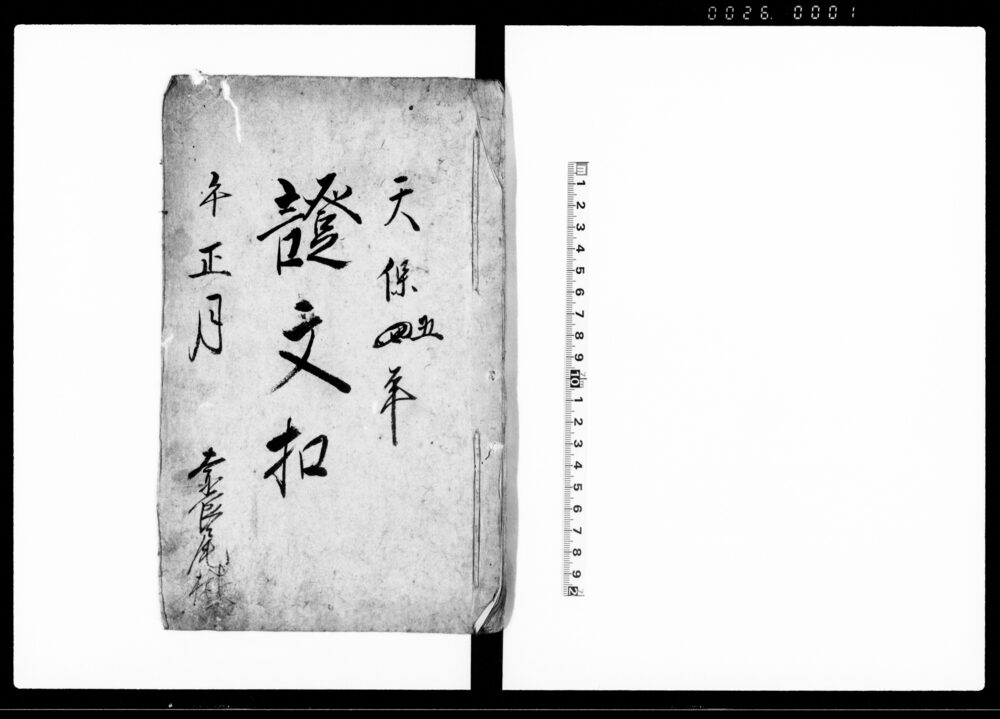 0026. 0001
天保四五年
證文扣
午正月
長尾村
1 2 3 4 5 6 7 8 9 10 1 2 3 4 5 6 7 8 9 2